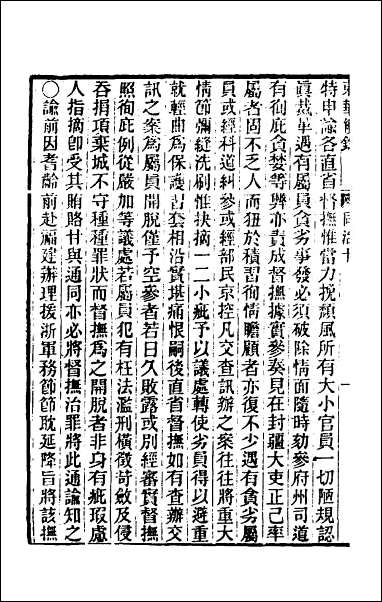 東華續錄　同治十　一
特申諭各直省督撫惟當力挽頹風所有大小官員一切陋規認
眞裁革遇有屬員貪劣事發必須破除情面隨時劾參府州司道
有徇庇貪婪等弊亦責成督撫據實參奏見在封疆大吏正己率
屬者固不乏人而狃於積習徇情瞻顧者亦復不少遇有貪劣屬
員或經科道糾參或經部民京控凡交查訊辦之案往往將重大
情節彌縫洗刷惟抉摘一二小疵予以議處轉使劣員得以避重
就輕曲爲保護習套相沿實堪痛恨嗣後直省督撫如有查辦交
訊之案爲屬員開脫僅予空參者若日久敗露或別經審實督撫
照徇庇例從嚴加等議處若屬員犯有枉法濫刑橫徵苛斂及侵
吞捐項棄城不守種種罪狀而督撫爲之開脫者非身有疵瑕處
人指摘卽受其賄賂甘與通同亦必將督撫治罪將此通諭知之
○諭前因耆齡前赴福建辦理援浙軍務節節耽延降旨將該撫